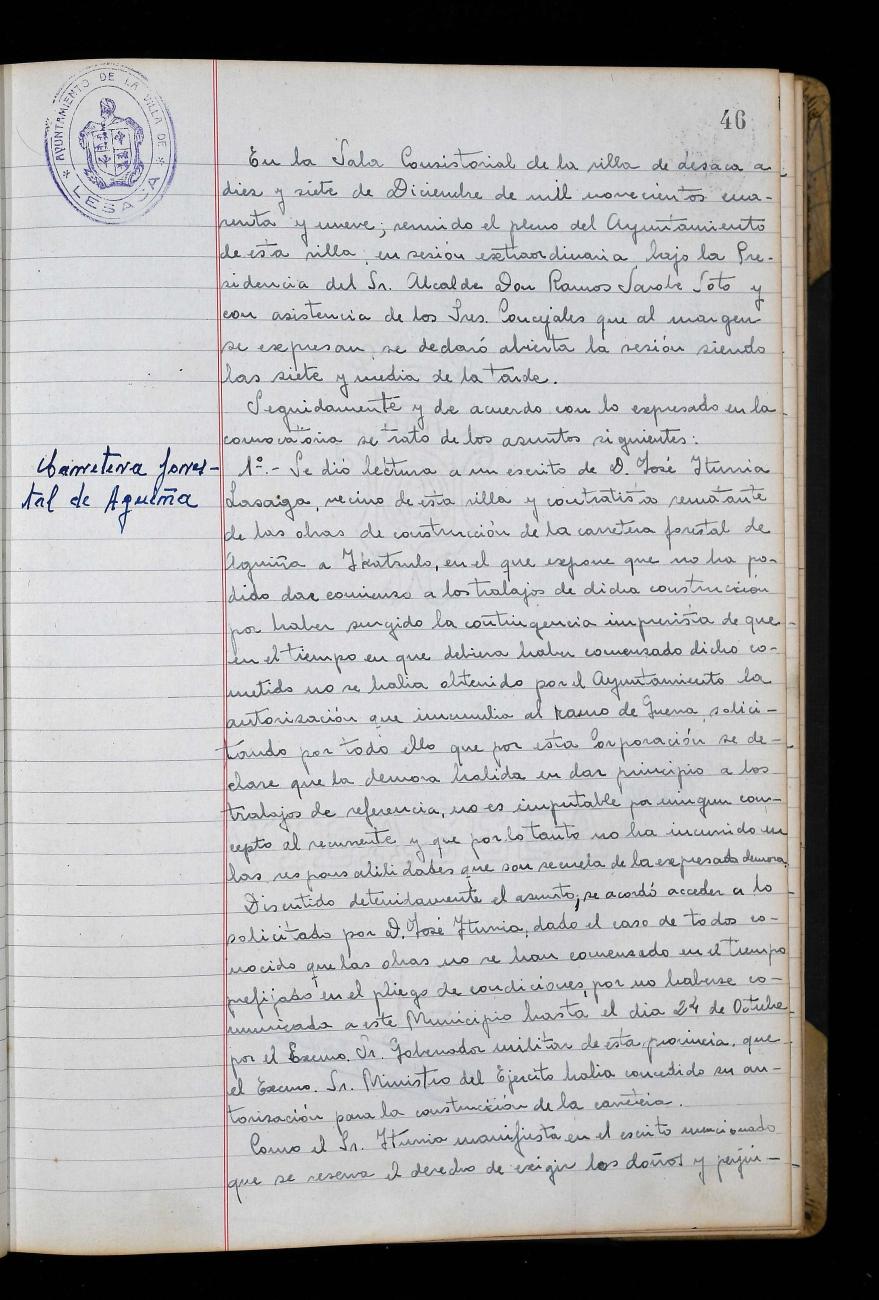 * AYUNTAMIENTO DE LA VILLA DE * LESACA
46
En la Sala Consistorial de la villa de Lesaca a
diez y siete de Diciembre de mil novecientos cua-
renta y nueve; reunido el pleno del Ayuntamiento
de esta villa, en sesión extraordinaria bajo la Pre-
sidencia del Sr. Alcalde Don Ramos Sarobe Soto y
con asistencia de los Sres. Concejales que al margen
se expresan, se declaró abierta la sesión siendo
las siete y media de la tarde.
Seguidamente y de acuerdo con lo expresado en la
convocatoria se trato de los asuntos siguientes:
Carretera fores-
tal de Agueña
1º.- Se dió lectura a un escrito de D. José Iturria
Lasaiga, vecino de esta villa y contratista rematante
de las obras de construcción de la carretera forestal de
Aguiña a, en el que expone que no ha po-
dido dar comienzo a los trabajos de dicha construcción
por haber surgido la contingencia imprevista de que
en el tiempo en que debiera haber comenzado dicho co-
metido no se habia obtenido por el Ayuntamiento la
autorización que incumbia al ramo de Guerra, solici-
tando por todo ello que por esta Corporación se de-
clare que la demora habida en dar principio a los
trabajos de referencia, no es imputable por ningun con-
cepto al recurrente y que por lo tanto no ha incurrido en
las responsabilidades que son secuela de la expresada demora.
Discutido detenidamente el asunto, se acordó acceder a lo
solicitado por D. José Iturria, dado el caso de todos co-
nocido que las obras no se han comenzado en el tiempo
prefijado en el pliego de condiciones, por no haberse co-
municado a este Municipio hasta el dia 24 de Octubre
por el Excmo. Sr. Gobernador militar de esta provincia, que
el Excmo. Sr. Ministro del Ejercito habia concedido su au-
torización para la construcción de la carretera.
Como el Sr. Iturria manifiesta en el escrito mencionado
que se reserva el derecho de exigir los daños y perjui-